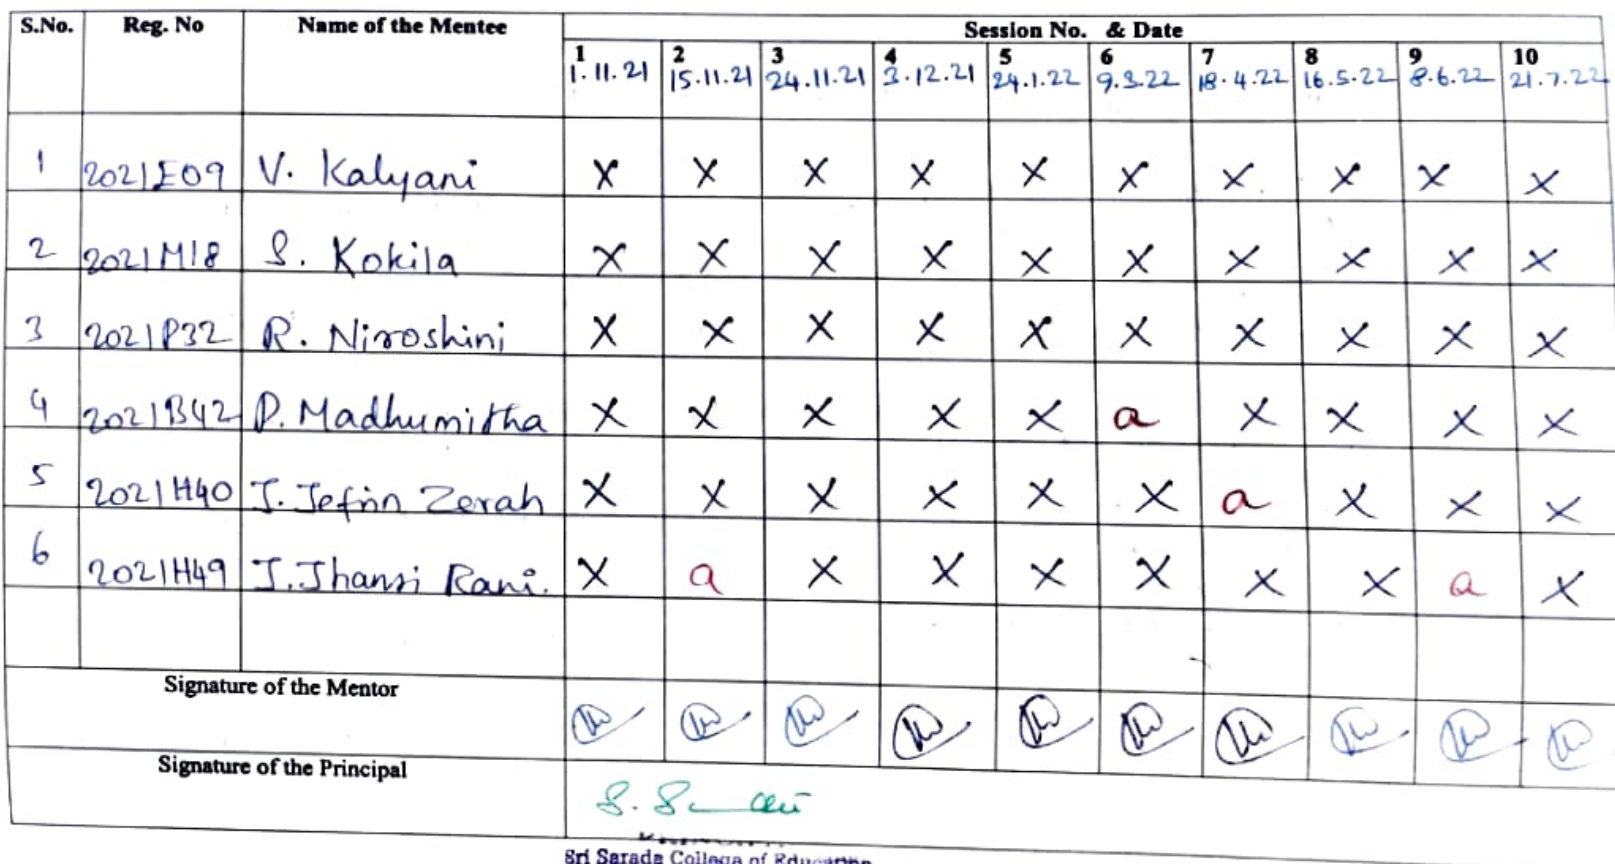 S.No. Reg. No Name of the Mentee Session No. & Date
1 2 3 4 5 6 7 8 9 10
1.11.21 15.11.21 24.11.21 3.12.21 24.1.22 9.3.22 18.4.22 16.5.22 8.6.22 21.7.22
1 2021E09 V. Kalyani X X X X X X X X X X
2 2021M18 S. Kokila X X X X X X X X X X
3 2021P32 R. Niroshini X X X X X X X X X X
4 2021B42 D. Madhumitha X X X X X a X X X X
5 2021H40 J. Jefrin Zerah X X X X X X a X X X
6 2021H49 J. Jhansi Rani. X a X X X X X X a X
Signature of the Mentor
Signature of the Principal
Sri Sarada College of Education